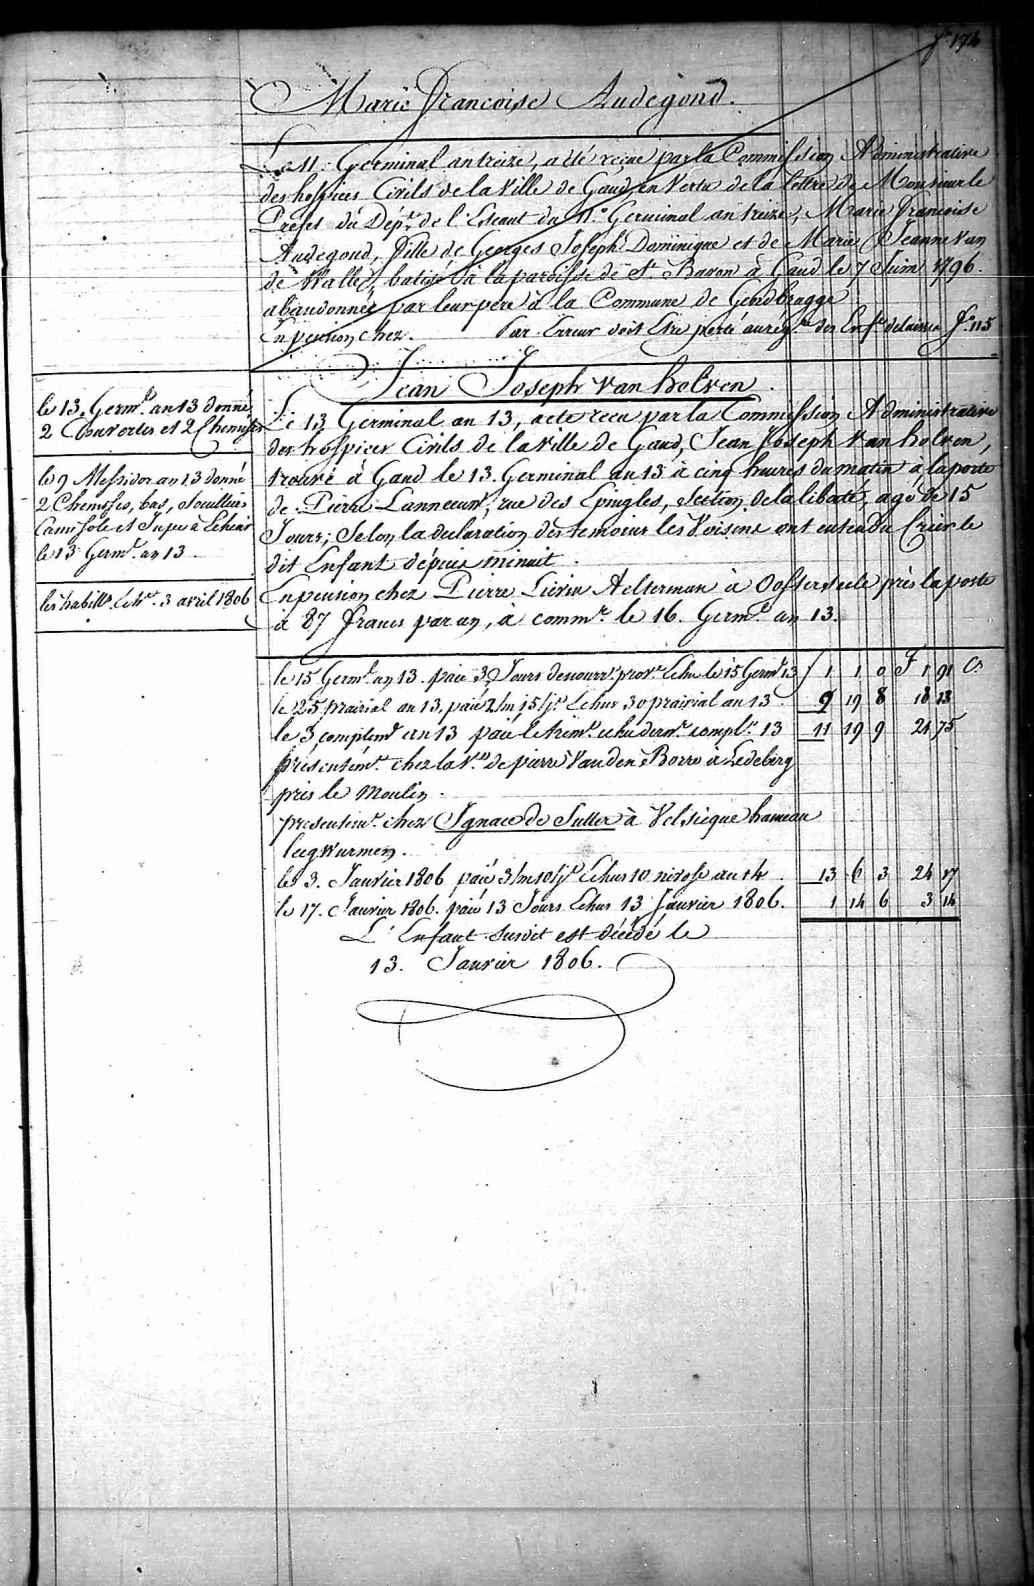 fo 174
Marie Francoise Audegond.
Le 11. Germinal an treize, a été recue par la Commission Administrative
des hospices Civils de la Ville de Gand, en Vertu de la lettre de Monsieur le
Prefet du Dépt. de l'Escaut du 11.e Germinal an treize, Marie Francoise
Audegond, fille de Georges Joseph Dominique et de Marie Jeanne Van
de Walle, batisée à la paroisse de St. Bavon à Gand le 7 Juin 1796.
abandonnée par leur père à la Commune de Gendbrugge
En pension chez. Par Erreur doit Etre porté au rég.re des Enf.s delaissés fo. 115
Jean Joseph van holven.
le 13. Germ.l an 13 donné
2 Couvertes et 2 Chemises
le 9 Messidor an 13 donné
2 Chemises, bas, Souilliers
Camisole et Jupe à Echoir
le 13 Germ.l an 13.
les habill.s Ech.r 3 avril 1806
Le 13 Germinal an 13, a eté recu par la Commission Administrative
des hospices Civils de la Ville de Gand, Jean Joseph Van holven,
trouvé à Gand le 13. Germinal an 13 à cinq heures du matin à la porte
de Pierre Lanneeuw, rue des Epingles, Section de la liberté, agé de 15
Jours; Selon la declaration des temoins les Voisins ont entendu Crier le
dit Enfant dépuis minuit.
En pension chez Pierre Lievin Aelterman à Oosterseele près la poste
à 87 francs par an, à comm.r le 16. Germ.l an 13.
le 15 Germ.l an 13. paié 3 Jours de nourr.e prov.re Echu le 15 Germ.l 13 / 1 1 0 F 1 91 Cs
le 25 prairial an 13, paié 2/m 15/j.s Echus 30 prairial an 13. 9 19 8 18 13
le 3 complém.e an 13 paié le trim.e echu dern.r compl.re 13 11 19 9 21 75
présentém.t chez la V.ve de pierre Van den Borre à Ledeberg
près le Moulin.
presentem.t chez Ignace de Sutter à Velsicque hameau
leeg Wurmen.
le 3. Janvier 1806 paié 3/m 10/j.s Echus 10 nivose an 14. 13 6 3 24 17
le 17. Janvier 1806. paié 13 Jours Echus 13 Janvier 1806. 1 14 6 3 14
L'Enfant Susdit est décédé le
13. Janvier 1806.